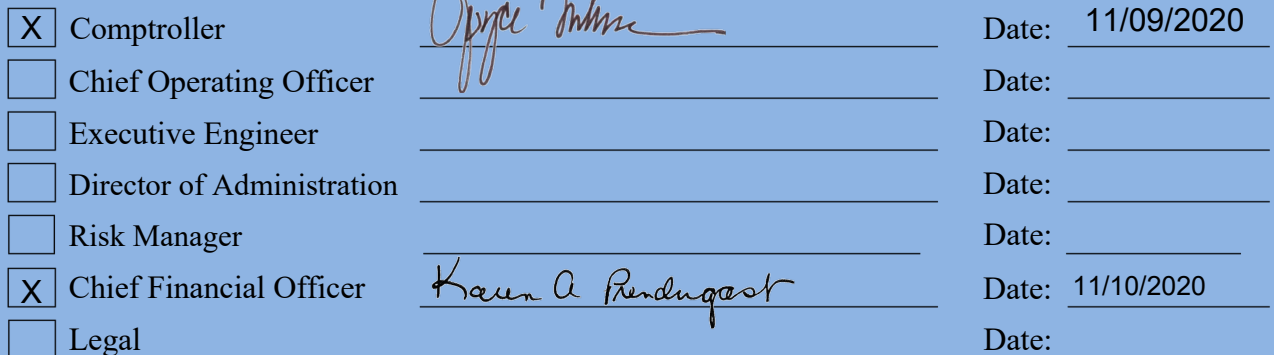 X Comptroller Date: 11/09/2020
Chief Operating Officer Date:
Executive Engineer Date:
Director of Administration Date:
Risk Manager Date:
X Chief Financial Officer Karen A Prendergast Date: 11/10/2020
Legal Date: